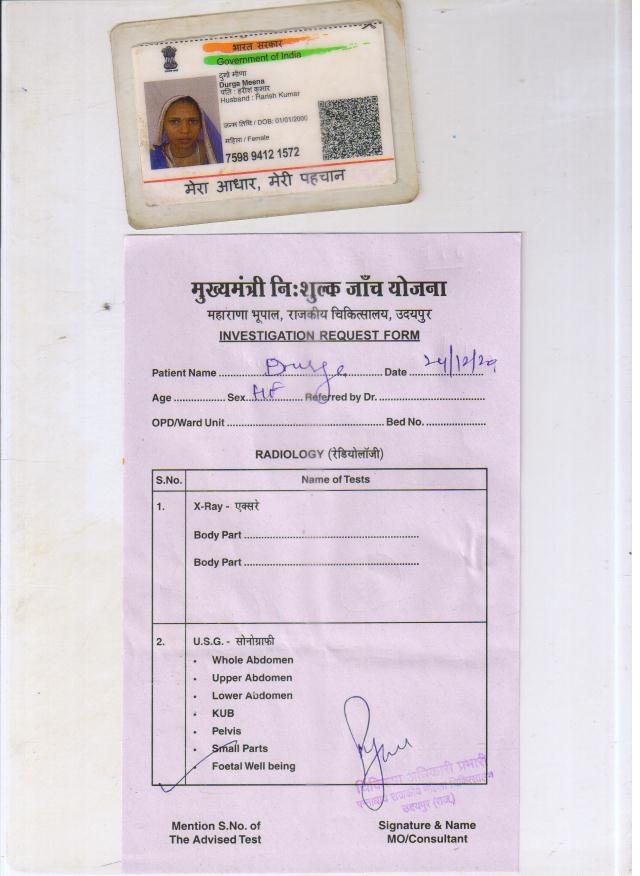 भारत सरकार
Government of India
Durga Meena
पति : हरीश कुमार
Husband : Harish Kumar
जन्म तिथि / DOB: 01/01/2000
महिला / Female
7598 9412 1572
मेरा आधार, मेरी पहचान
मुख्यमंत्री निःशुल्क जाँच योजना
महाराणा भूपाल, राजकीय चिकित्सालय, उदयपुर
INVESTIGATION REQUEST FORM
Patient Name Durga Date 24/12/29
Age Sex Referred by Dr.
OPD/Ward Unit Bed No.
RADIOLOGY (रेडियोलॉजी)
S.No. Name of Tests
1. X-Ray - एक्सरे
Body Part
Body Part
2. U.S.G. - सोनोग्राफी
• Whole Abdomen
• Upper Abdomen
• Lower Abdomen
• KUB
• Pelvis
• Small Parts
• Foetal Well being
चिकित्सा अधिकारी प्रभारी
उदयपुर (राज.)
Mention S.No. of Signature & Name
The Advised Test MO/Consultant